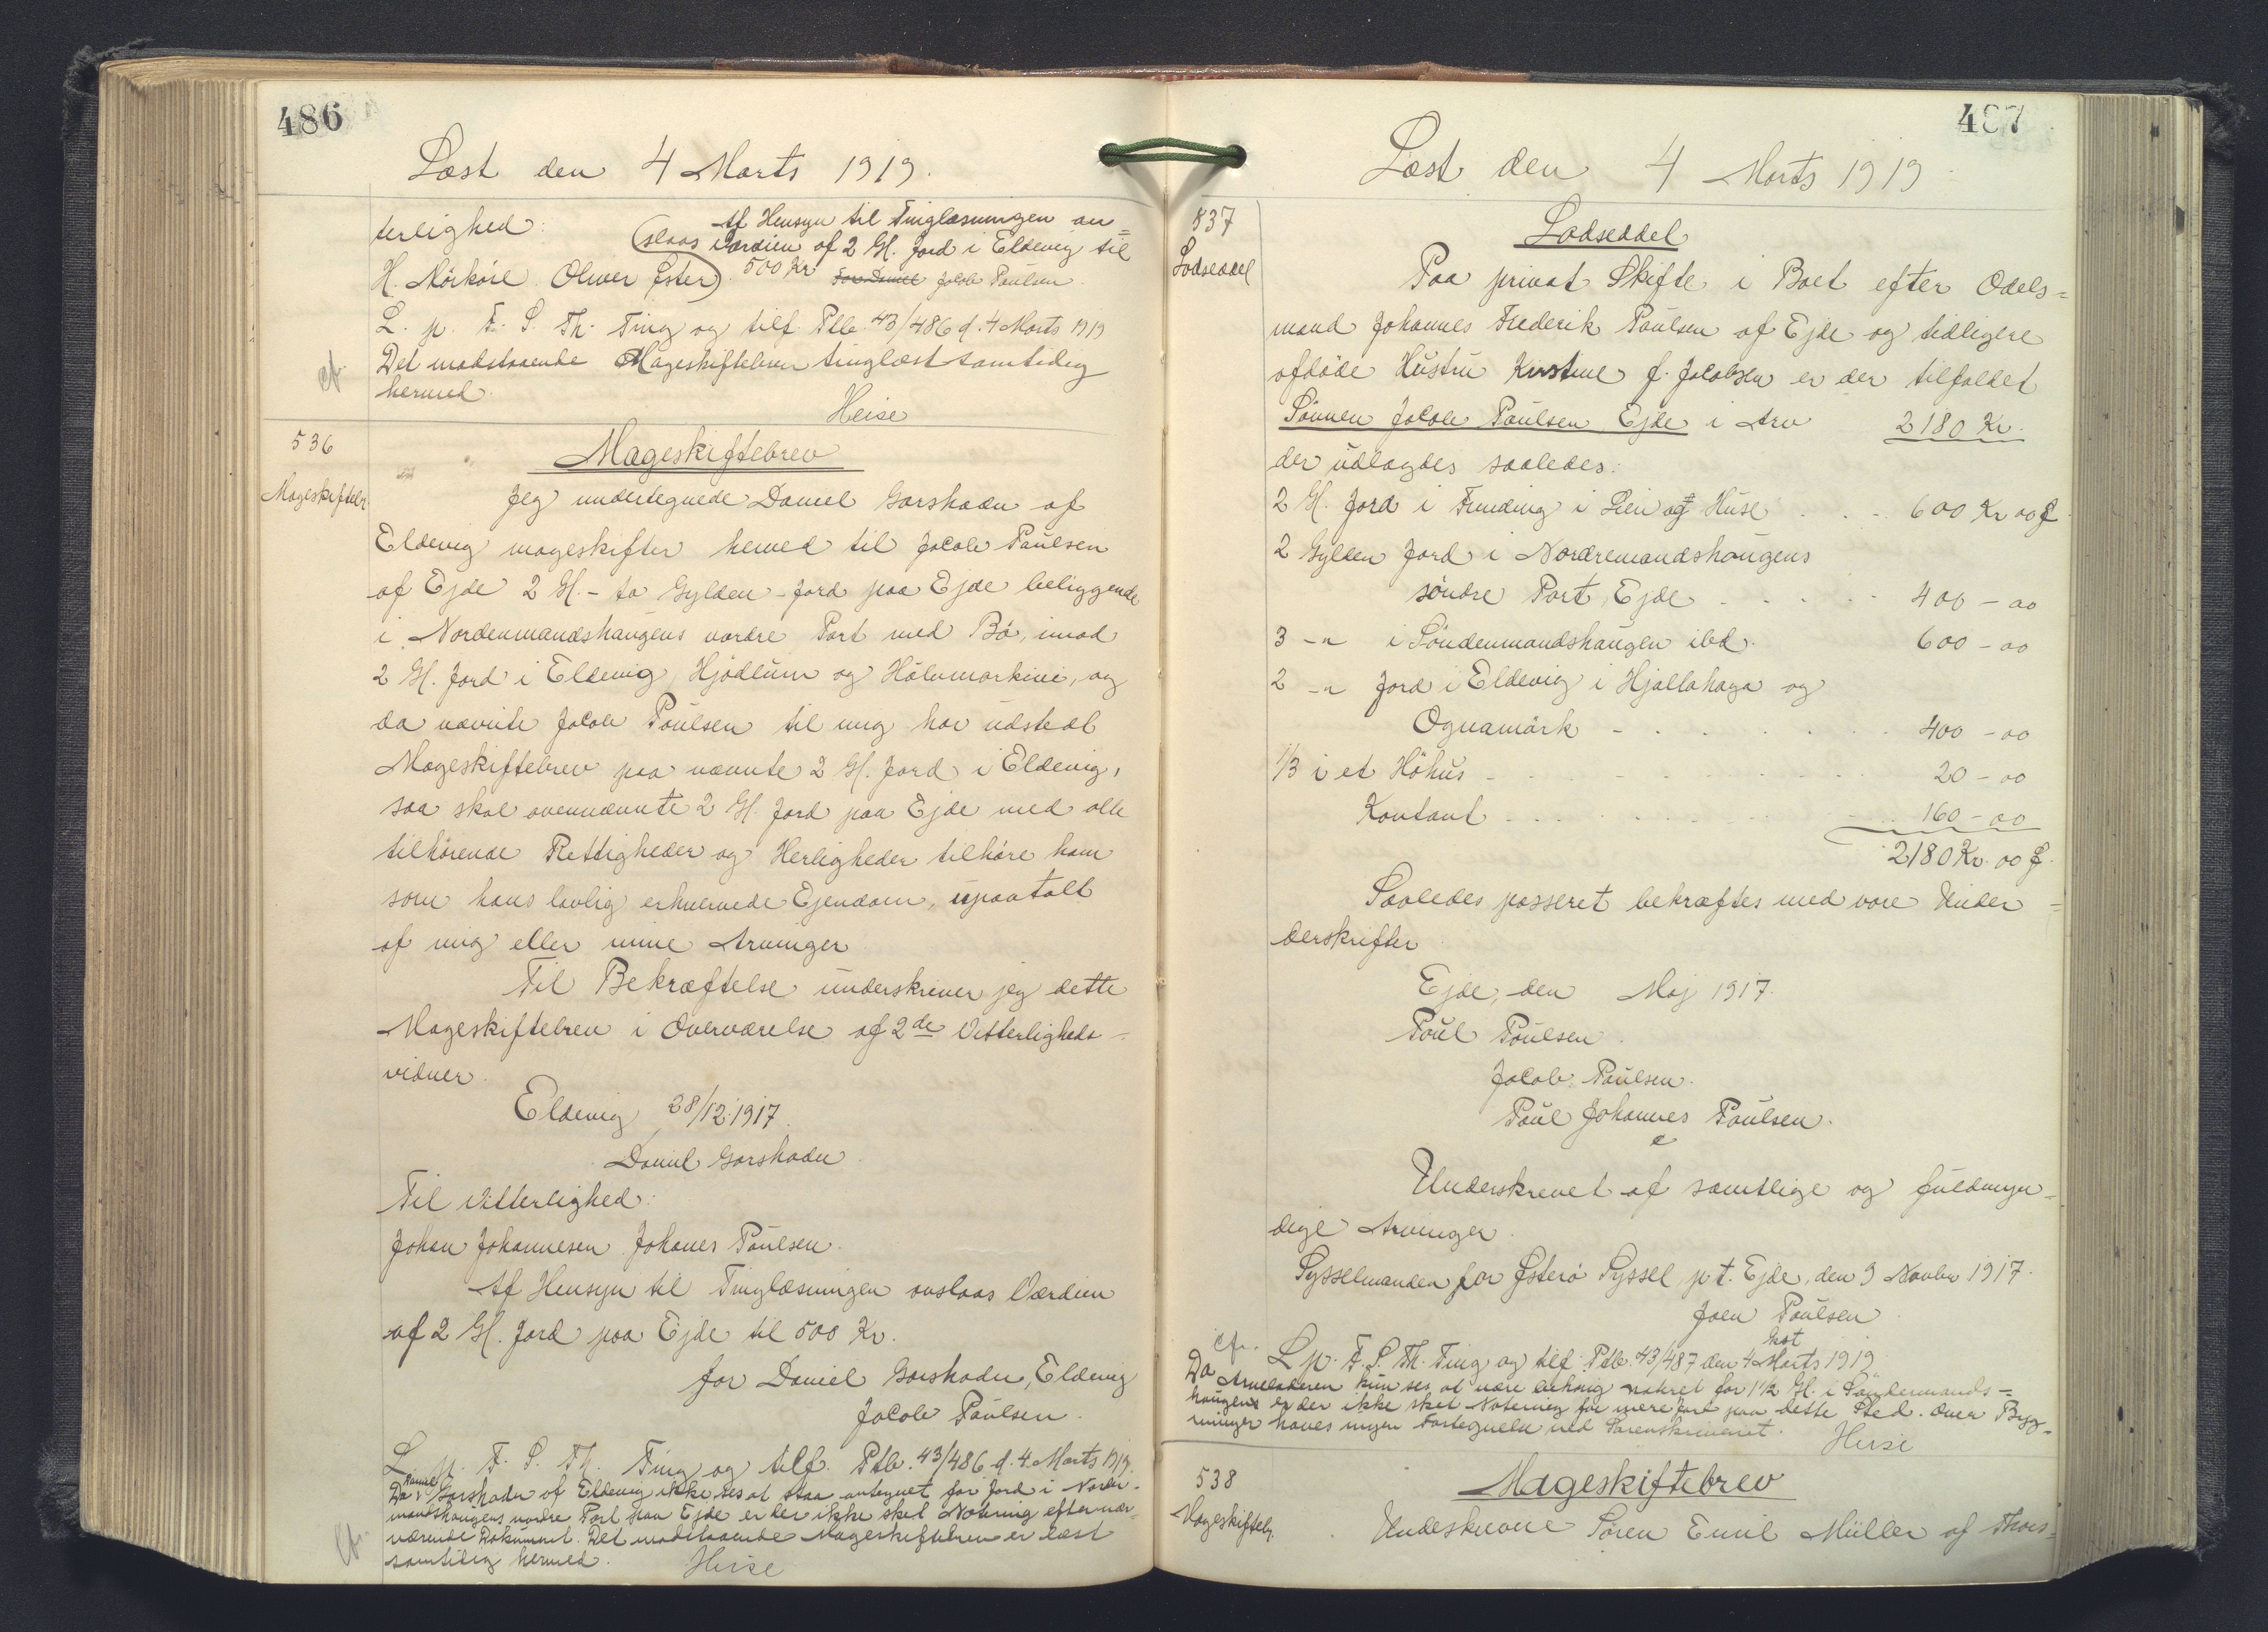 486
Læst den 4 Marts 1919.
terlighed: Af Hensyn til Tinglæsningen an=
(slaas Værdien af 2 Gl. Jord i Eldevig til
H. Mörköre Oliver Ester). 500 Kr Jacob Paulsen.
L. p. F. S. Th. Ting og tilf. Ptb. 43/486 d. 4 Marts 1919
cfr. Det modstaaende Mageskiftebrev tinglæst samtidig
hermed.
Heise
536
Mageskiftebr
Mageskiftebrev
Jeg undertegnede Daniel Garshadn af
Eldevig mageskifter herved til Jacob Paulsen
af Ejde 2 Gl. - to Gylden - Jord paa Ejde beliggende
i Nordenmandshaugens nordre Part med Bö, imod
2 Gl. Jord i Eldevig, Hjödlum og Hölvmarkini, og
da nævnte Jacob Poulsen til mig har udstedt
Mageskiftebrev paa nævnte 2 Gl. Jord i Eldevig,
saa skal ovennævnte 2 Gl. Jord paa Ejde med alle
tilhörende Rettigheder og Herligheder tilhöre ham
som hans lovlig erhvervede Ejendom, upaatalt
af mig eller mine Arvinger.
Til Bekræftelse underskriver jeg dette
Mageskiftebrev i Overværelse af 2de Vitterligheds-
vidner.
Eldevig 28/12. 1917.
Daniel Garshadn.
Til Vitterlighed:
Johan Johannesen. Johanes Paulsen.
Af Hensyn til Tinglæsningen anslaas Værdien
af 2 Gl. Jord paa Ejde til 500 Kr.
for Daniel Garshadn, Eldevig
Jacob Paulsen.
L. p. F. S. Th. Ting og tilf. Ptb. 43/486 d. 4. Marts 1919.
Da Daniel Garshadn af Eldevig ikke ses at staa antegnet for Jord i Norden-
mandshaugens nordre Part paa Ejde er der ikke sket Notering efter nær-
værende Dokument. Det modstaaende Mageskiftebrev er læst
cfr. samtidig hermed. Heise
487
Læst den 4 Marts 1919
537
Lodseddel
Lodseddel
Paa privat Skifte i Boet efter Odels=
mand Johannes Frederik Poulsen af Ejde og tidligere
afdöde Hustru Kirstine f. Jacobsen er der tilfaldet
Sönnen Jacob Paulsen Ejde i Arv 2180 Kr.
der udlagdes saaledes:
2 Gl. Jord i Funding i Lien og Huse . . . 600 Kr 00 Ø
2 Gylden Jord i Nordremandshaugens
söndre Part, Ejde . . . . 400 - 00
3 -"- i Söndenmandshaugen ibd. 600 - 00
2 -"- Jord i Eldevig i Hjallahaga og
Ognamörk - . . . . . 400 - 00
1/3 i et Höhus - . . . . . 20 - 00
Kontant . . . . . . 160 - 00
2180 Kr. 00 Ø.
Saaledes passeret bekræftes med vore Under=
derskrifter
Ejde, den Maj 1917.
Poul Poulsen.
Jacob Paulsen.
Poul Johannes Paulsen.
Underskrevet af samtlige og fuldmyn-
dige Arvinger.
Sysselmanden for Østerö Syssel, p. t. Ejde, den 3 Novbr 1917.
Joen Poulsen
Kst
cfr. L. p. F. S. Th. Ting og tilf. Ptb. 43/487 den 4 Marts 1919
Da Arveladeren kun ses at være behörig noteret for 1 1/2 Gl. i Söndermands=
haugen er der ikke sket Notering for mere Jord paa dette Sted. Over Byg-
ninger haves ingen Fortegnelse ved Sorenskriveriet. Heise
538
Mageskiftebr.
Mageskiftebrev
Undeskrevne Sören Emil Müller af Thors=